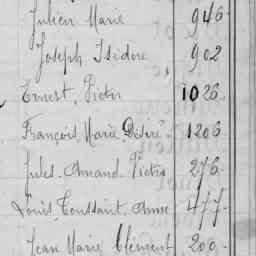 Julien Marie 946.
Joseph Isidore 902
Ernest, Victor 1026.
François Marie Désiré 1206
Jules. Amand. Victor 276.
Louis Toussaint Anne 477.
Jean Marie Clément 200.